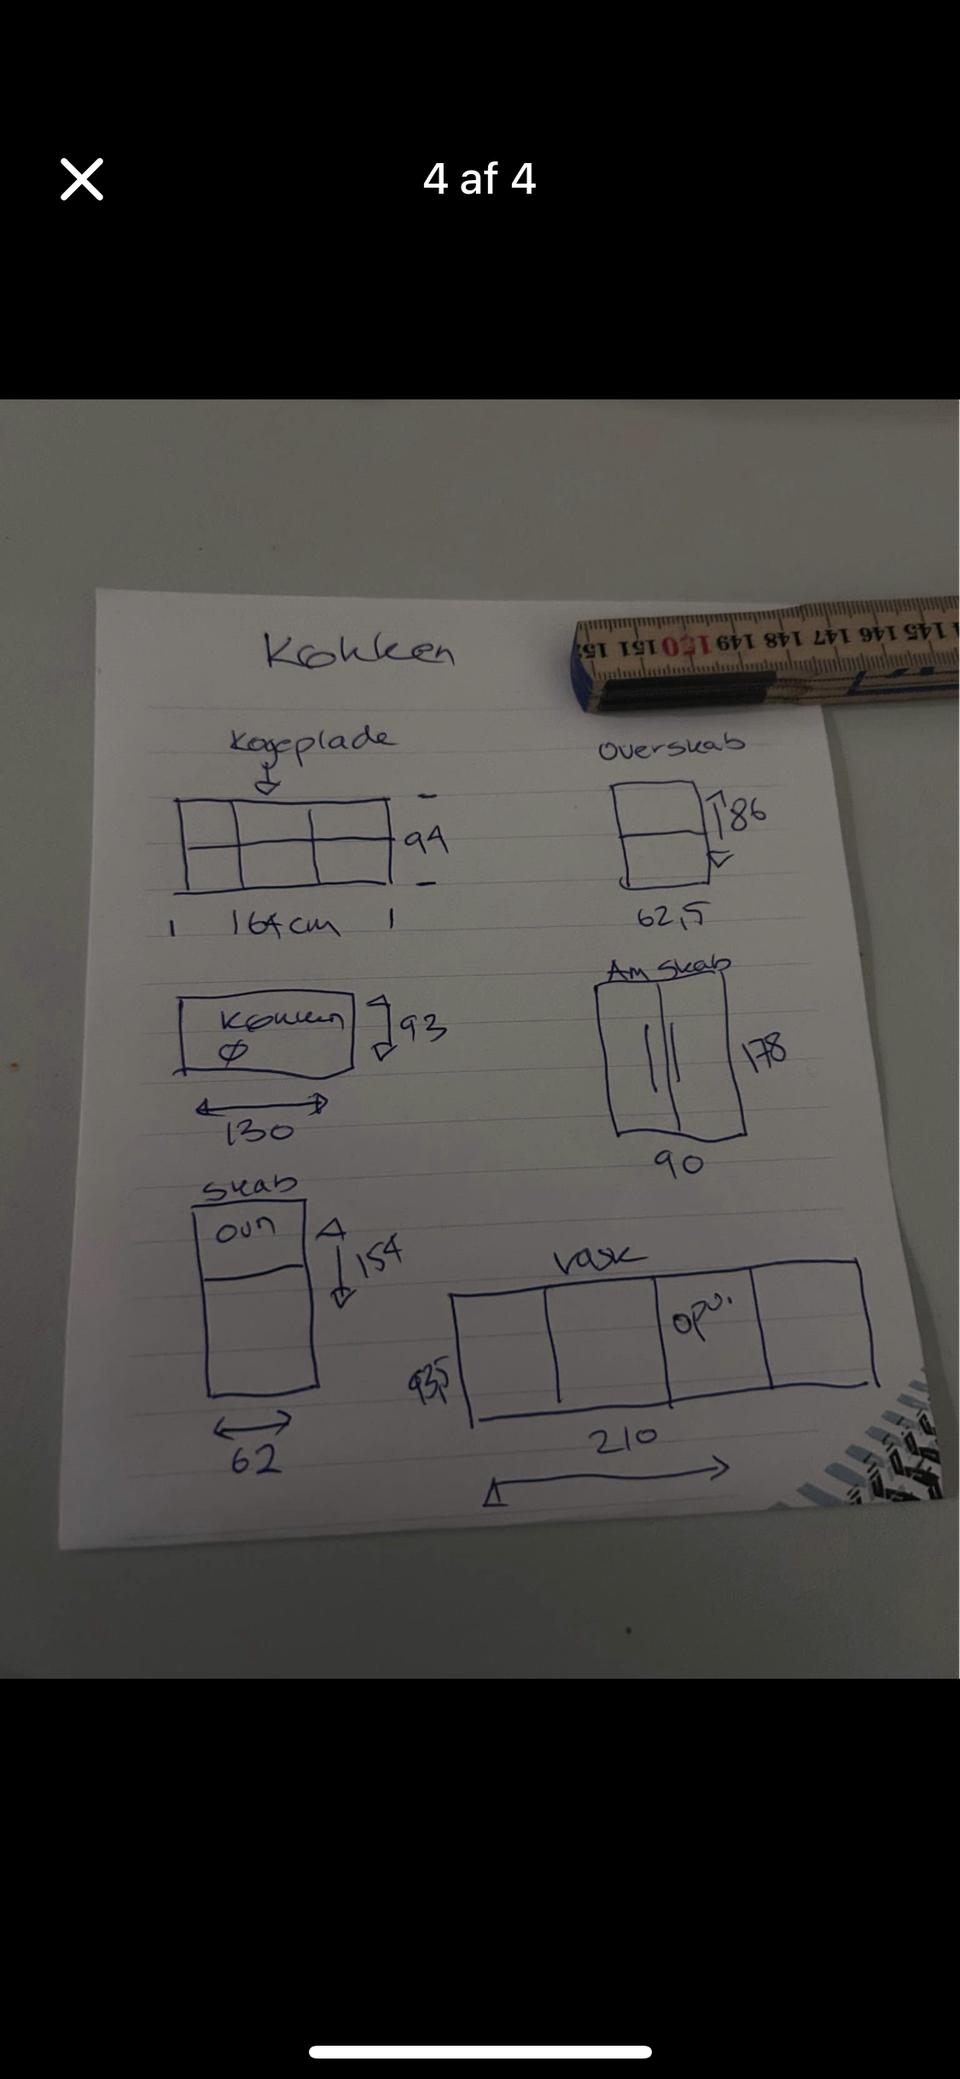 4 af 4
Køkken
151 151 150 149 148 147 146 145 1
Kogeplade
94
164 cm
Overskab
86
62,5
Køkken
Ø
93
130
Am skab
178
90
Skab
Ovn
154
62
Vask
opv.
93,5
210